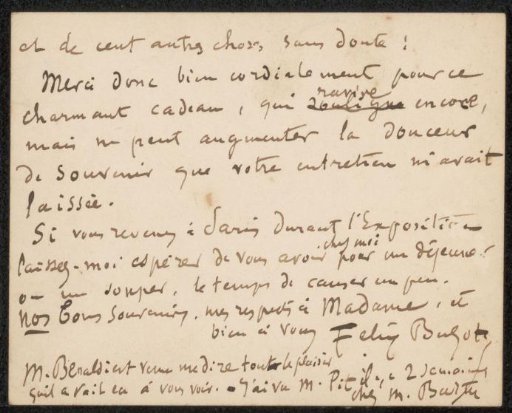 et de cent autres choses, sans doute !
Merci donc bien cordialement pour ce
charmant cadeau, qui ravive souligne encore,
mais ne peut augmenter la douceur
de souvenir que votre entretien m'avait
laissée.
Si vous revenez à Paris durant l'Exposition
laissez-moi espérer de vous avoir chez moi pour un déjeuner
ou un souper, le temps de causer un peu.
Nos bons souvenirs, mes respects à Madame, et
bien à vous Felix Buhot
M. Beraldi est venu me dire tout le plaisir
qu'il avait eu à vous voir. - J'ai vu M. il y a 2 semaines
chez M.